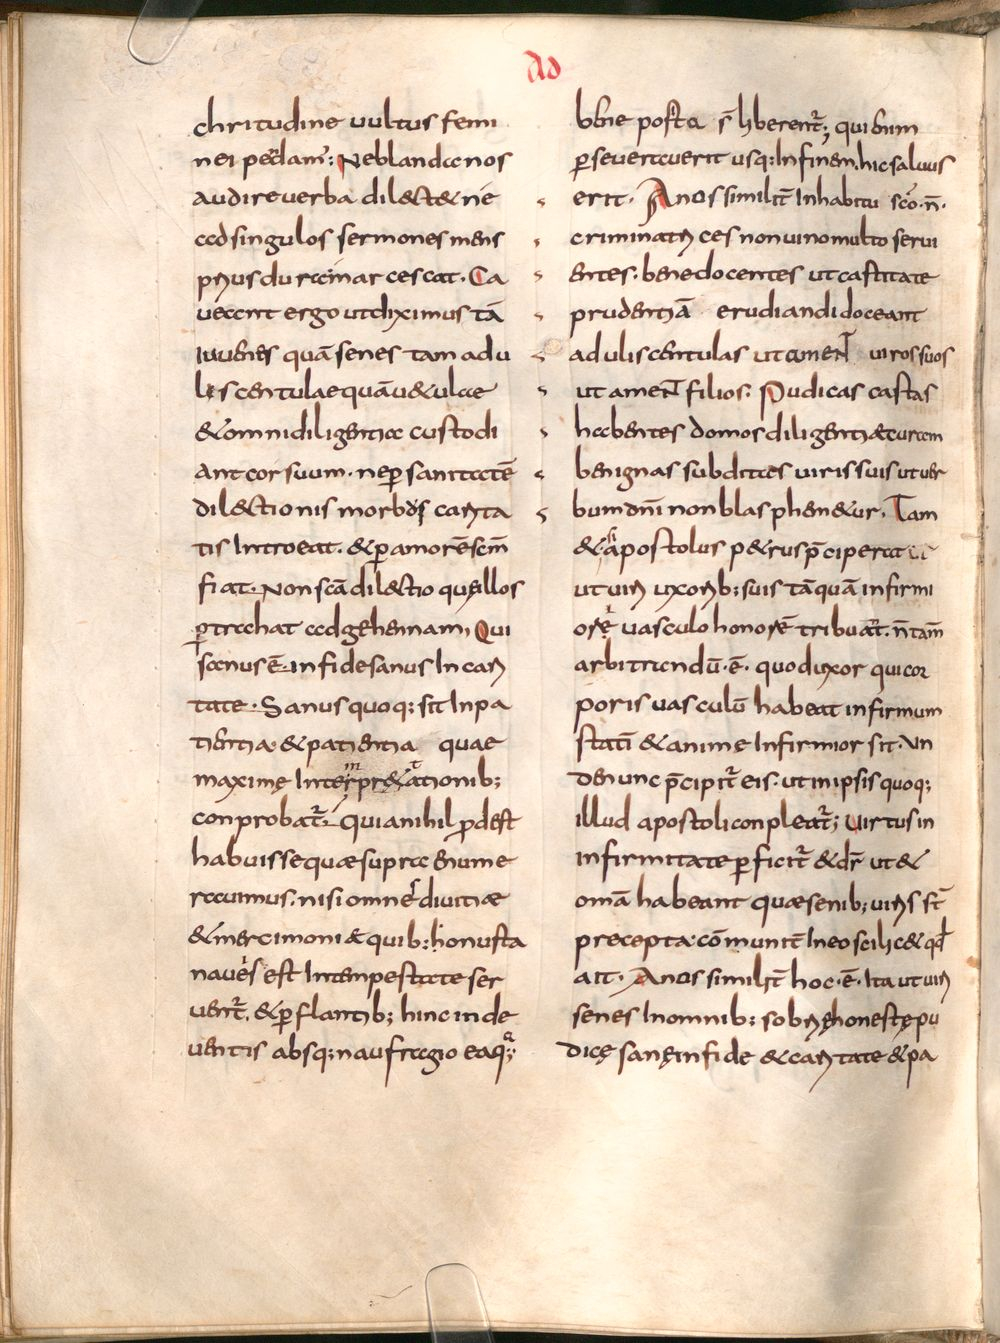 Ad
chritudine uultus femi
nei perdam; Ne blanda nos
audire uerba dilectet ne
ad singulos sermones mens
prius dura inarcescat. Ca
ueant ergo ut diximus tā
iuuenes quā senes tam adu
liscentulae quā uetulae
& omni diligentia custodi
ant cor suum. ne ꝑ sanitatē
dilectionis morbus carita
tis Introeat. & ꝑ amorē scm̄
fiat. Non scā dilectio quę illos
ꝑtrahat ad gehennam, Qui
sanus ē in fide sanus In cari
tate. Sanus quoq; sit In pa
tientia. & patientia quae
maxime Inter atıonib;
conprobat̄. Quia nihil ꝓdest
habuisse quae supra enume
rauimus. nisi omne diuitiae
& mercimoniae quib; honusta
nauis est In tempestate ser
uent̄. & ꝑflantib; hinc inde
uentis absq; naufragio eaq;
bene posita s̄ liberent̄; qui enim
ꝑseuerauerit usq; In finem. hic saluus
erit. Anos similit̄ In habitu sc̄o. n̄.
criminatrices non uino multo serui
entes. bene docentes ut castitate
prudentiā erudiandi doceant
aduliscentulas ut ament uiros suos
ut ament filios. Pudicas castas
habentes domos diligentiae curam
benignas subditas uiris suis ut uer
bum dn̄i non blasphemetur. Tam
& apostolus petrus p̄ciperat
ut uiri uxorib; suis tāquā infirmi
orē uasculo honorē tribuāt. n̄ tam̄
arbitrandū. ē. quod uxor qui cor
poris uasculū habeat infirmum
statī & anime Infirmior sit. Un
de nunc p̄cipit̄ eis. ut in ipsis quoq;
illud apostoli conpleat̄; uirtus in
infirmitate ꝑficit̄ & dr̄ ut &
omā habeant quae senib; uiris st̄
precepta. cōmunit̄ In eo scilicet qd̄
ait. Anos similit̄ hoc. ē. Ita ut uiri
senes In omnib; sobrię honestę pu
dicę sanę in fide & caritate & pa